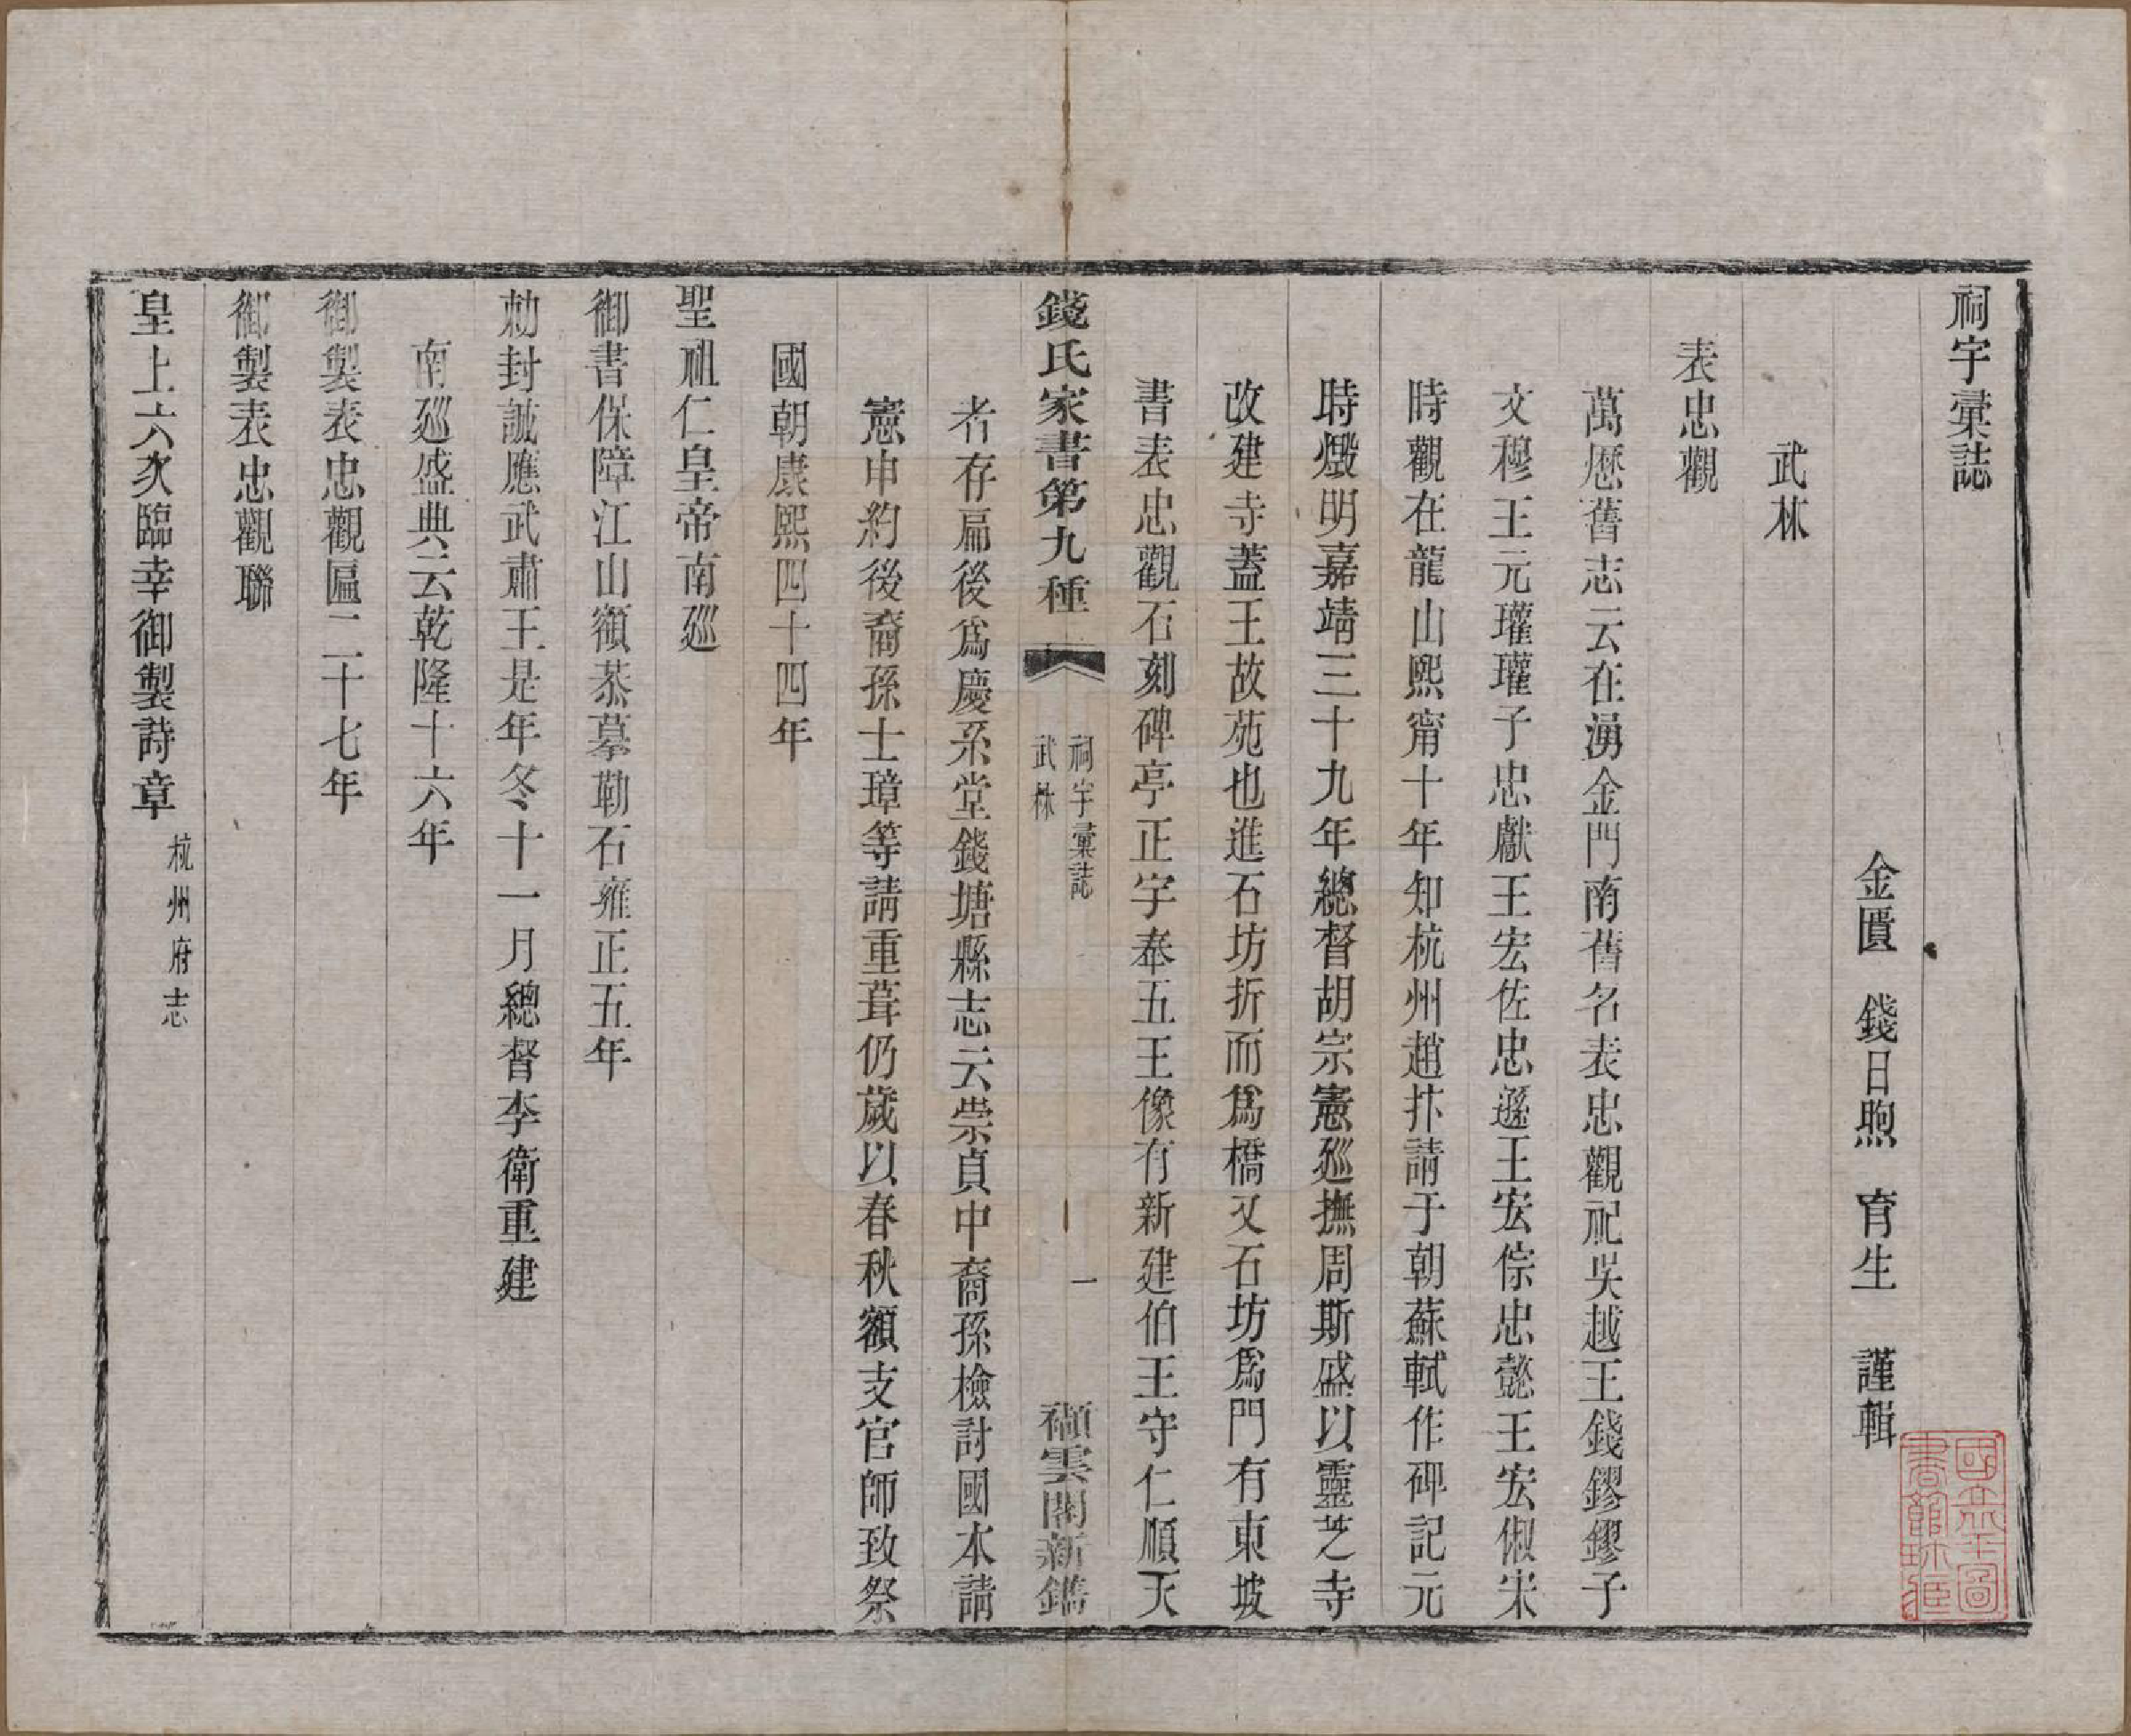 祠宇彙誌
金匱　錢日煦　育生　謹輯
武林
表忠觀
萬厯舊志云在湧金門南舊名表忠觀祀吳越王錢鏐鏐子
文穆王元瓘瓘子忠獻王宏佐忠遜王宏倧忠懿王宏俶宋
時觀在龍山熙甯十年知杭州趙抃請于朝蘇軾作碑記元
時燬明嘉靖三十九年總督胡宗憲廵撫周斯盛以靈芝寺
改建寺蓋王故苑也進石坊折而爲橋又石坊爲門有東坡
書表忠觀石刻碑亭正字奉五王像有新建伯王守仁順天
錢氏家書第九種
祠宇彙誌
武林
一
纈雲閣新鐫
者存扁後爲慶系堂錢塘縣志云崇貞中裔孫檢討國本請
憲申約後裔孫士璋等請重葺仍歲以春秋額支官師致祭
國朝康熙四十四年
聖祖仁皇帝南廵
御書保障江山額恭摹勒石雍正五年
勅封誠應武肅王是年冬十一月總督李衛重建
南廵盛典云乾隆十六年
御製表忠觀匾二十七年
御製表忠觀聯
皇上六次臨幸御製詩章杭州府志
國立北平圖書館珍藏